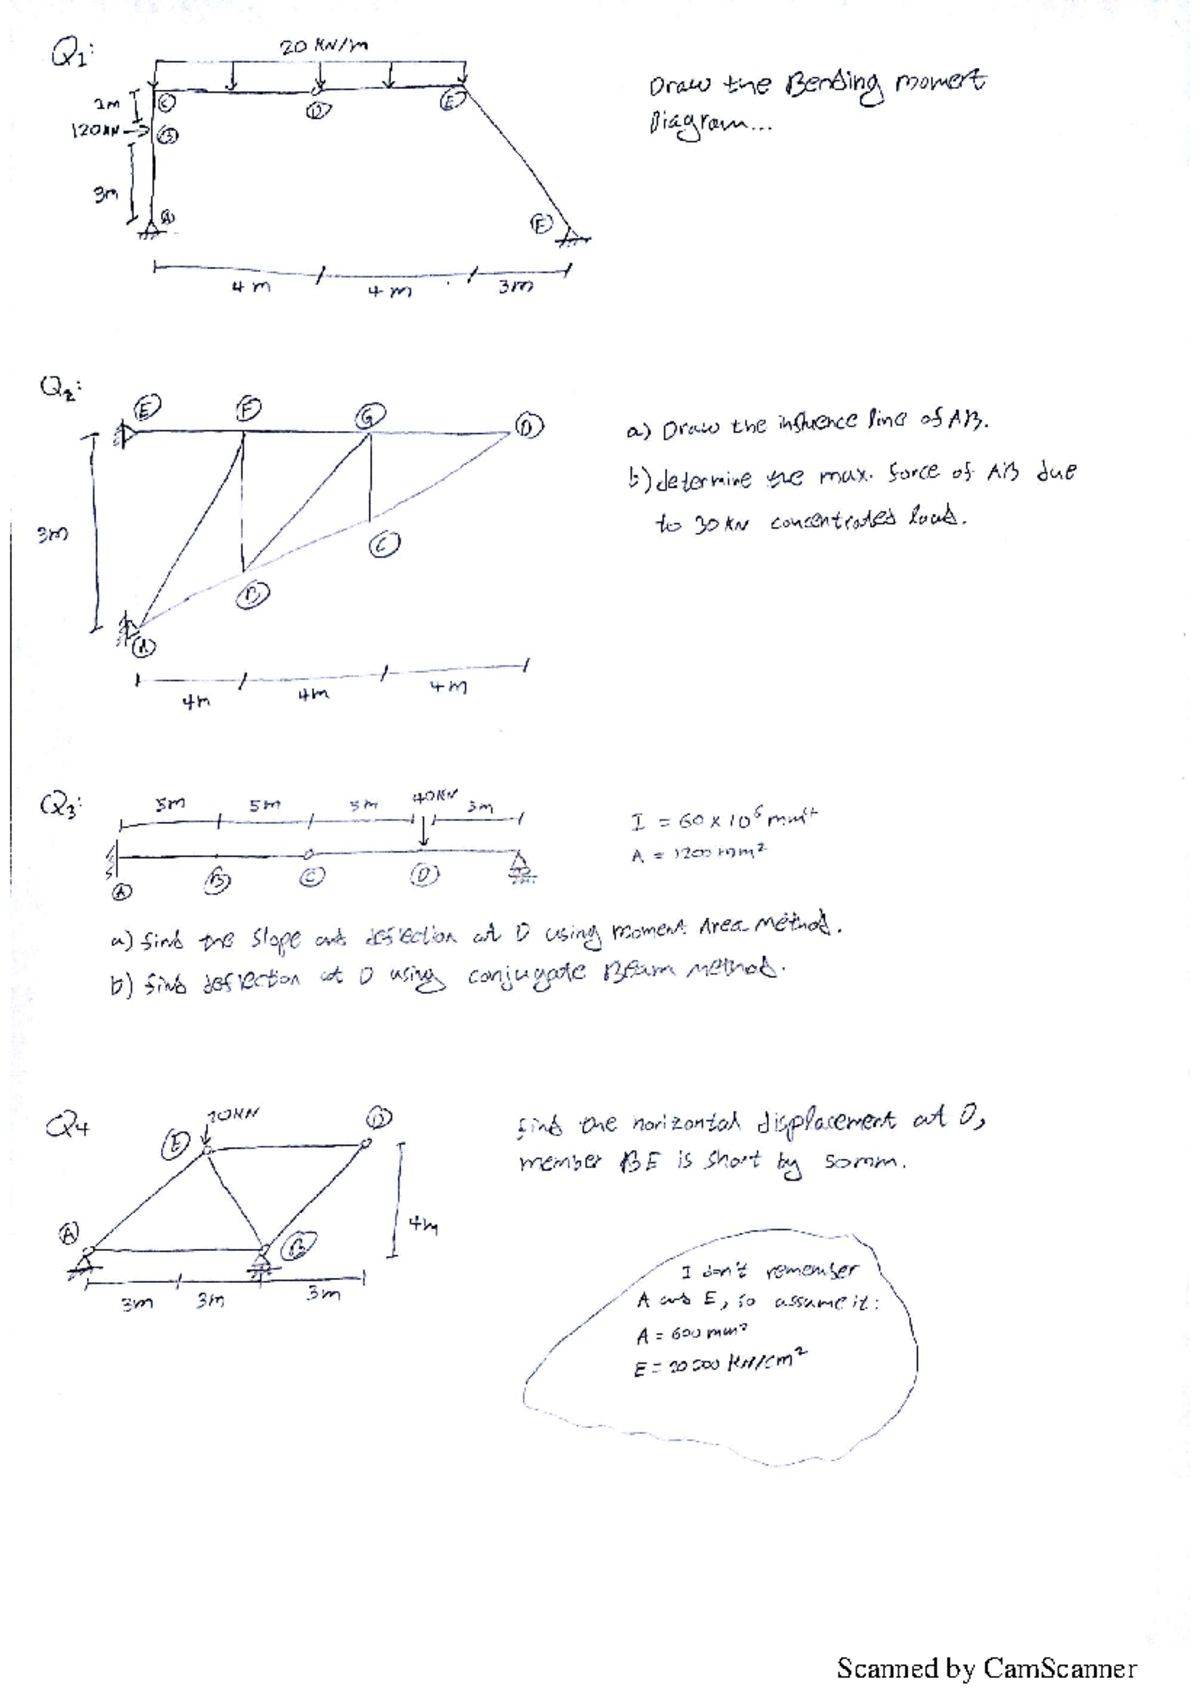 Q1:
20 KN/m
C
D
E
1m
120KN
B
3m
A
F
4m
4m
3m
Draw the Bending moment
Diagram...
Q2:
E
F
G
D
3m
C
B
A
4m
4m
4m
a) Draw the influence line of AB.
b) determine the max. force of AB due
to 30KN concentrated load.
Q3:
5m
5m
5m
40KN
5m
A
B
C
D
I = 60 x 10⁶ mm⁴
A = 1200 mm²
a) find the slope and deflection at D using moment Area method.
b) find deflection at D using conjugate Beam method.
Q4
E
D
A
B
4m
3m
3m
3m
find the horizontal displacement at D,
member BE is short by 50mm.
I don't remember
A and E, so assume it:
A = 600 mm²
E = 20000 KN/cm²
Scanned by CamScanner